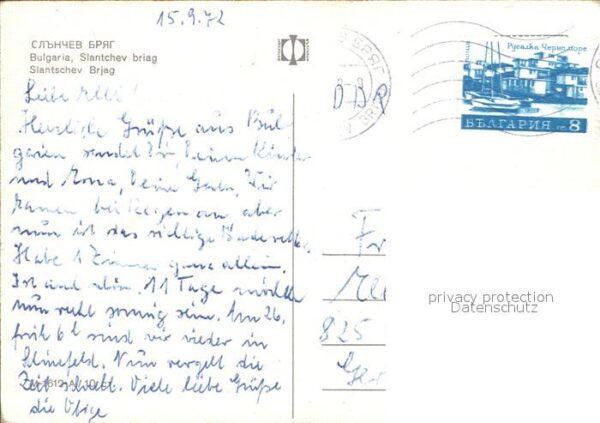 15.9.72
СЛЪНЧЕВ БРЯГ
Bulgaria, Slantchev briag
Slantschev Brjag
Русалка Черно море
БЪЛГАРИЯ 8
DDR
Liebe
Herzliche Grüße aus Bul-
garien sendet Dir, Deinen Kinder
und Deine Wir
kamen bei Regen an aber
nun ist das richtige Badewetter.
Habe 1 Zimmer ganz allein.
Ist auch schön. 11 Tage möchte
nun recht sonnig sein. Am 26.
früh 6h sind wir wieder in
Schönefeld. Nun vergeht die
Zeit schnell. Viele liebe Grüße
die
Fr
825
privacy protection
Datenschutz